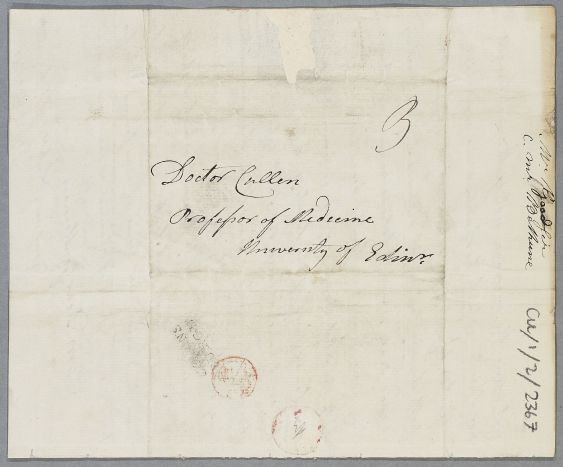 3
Doctor Cullen
Professor of Medicine
University of Edinr.
c. Mr Bethune
Cul/1/2/2367